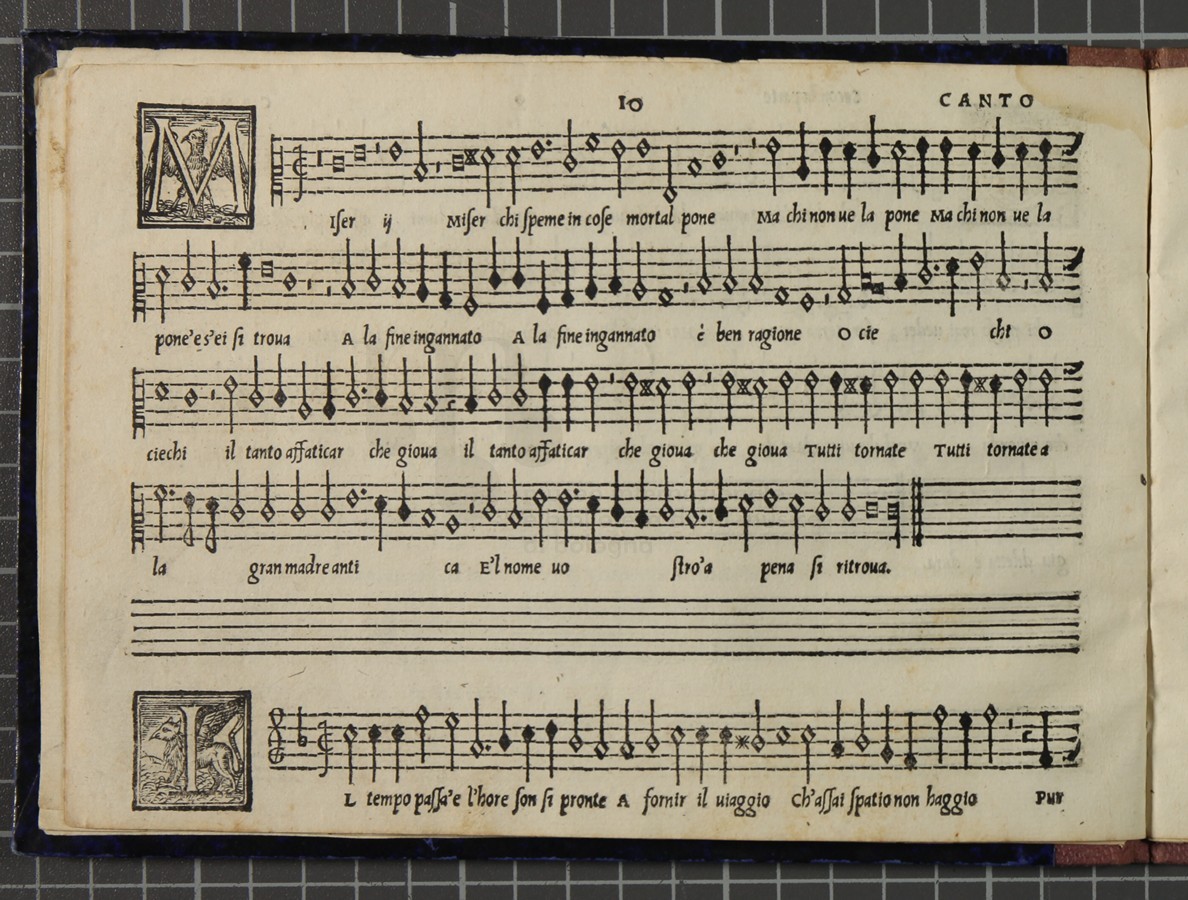 10 CANTO
M
Iſer ij Miſer chi ſpeme in coſe mortal pone Ma chi non ue la pone Ma chi non ue la
pone'e s'ei ſi troua A la fine ingannato A la fine ingannato è ben ragione O cie chi O
ciechi il tanto affaticar che gioua il tanto affaticar che gioua che gioua Tutti tornate Tutti tornate a
la gran madre anti ca E'l nome uo ſtro'a pena ſi ritroua.
I
L tempo paſſa'e l'hore ſon ſi pronte A fornir il uiaggio Ch'aſſai ſpatio non haggio Pur